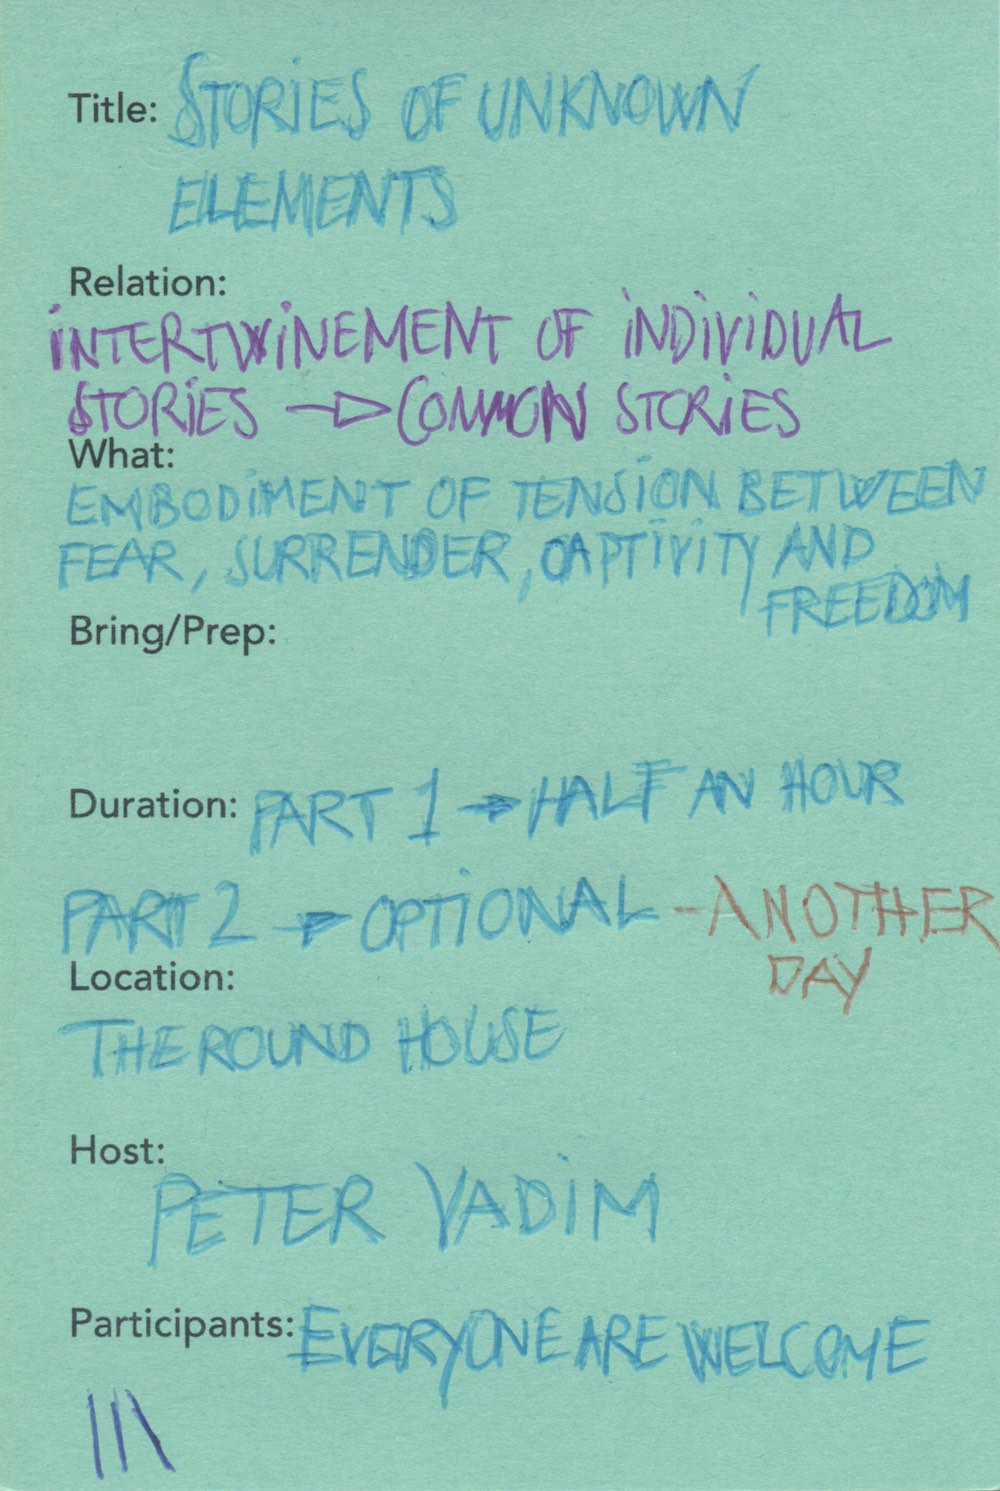 Title: STORIES OF UNKNOWN
ELEMENTS
Relation:
INTERTWINEMENT OF INDIVIDUAL
STORIES → COMMON STORIES
What:
EMBODIMENT OF TENSION BETWEEN
FEAR, SURRENDER, CAPTIVITY AND
FREEDOM
Bring/Prep:
Duration: PART 1 → HALF AN HOUR
PART 2 → OPTIONAL - ANOTHER
DAY
Location:
THE ROUND HOUSE
Host:
PETER VADIM
Participants: EVERYONE ARE WELCOME
|||